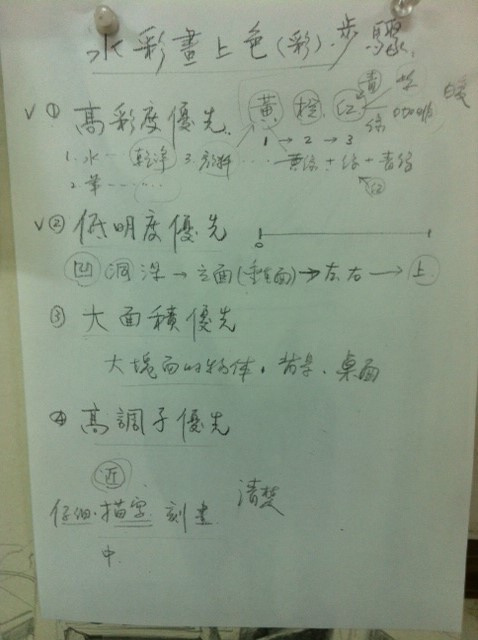 水彩畫上色(彩)步驟
v ① 高彩度優先. 黃 橙 紅 青 紫
綠 咖啡 暖
1 → 2 → 3
1. 水… 乾淨 3. 顏料… 黃綠+綠+青綠
2. 筆…… 紅
v ② 低明度優先 0
凹 洞 深 → 立面(垂直面) → 左、右 → 上
③ 大面積優先
大塊面的物体. 背景. 桌面
④ 高調子優先
近
仔細. 描寫. 刻畫 清楚
中